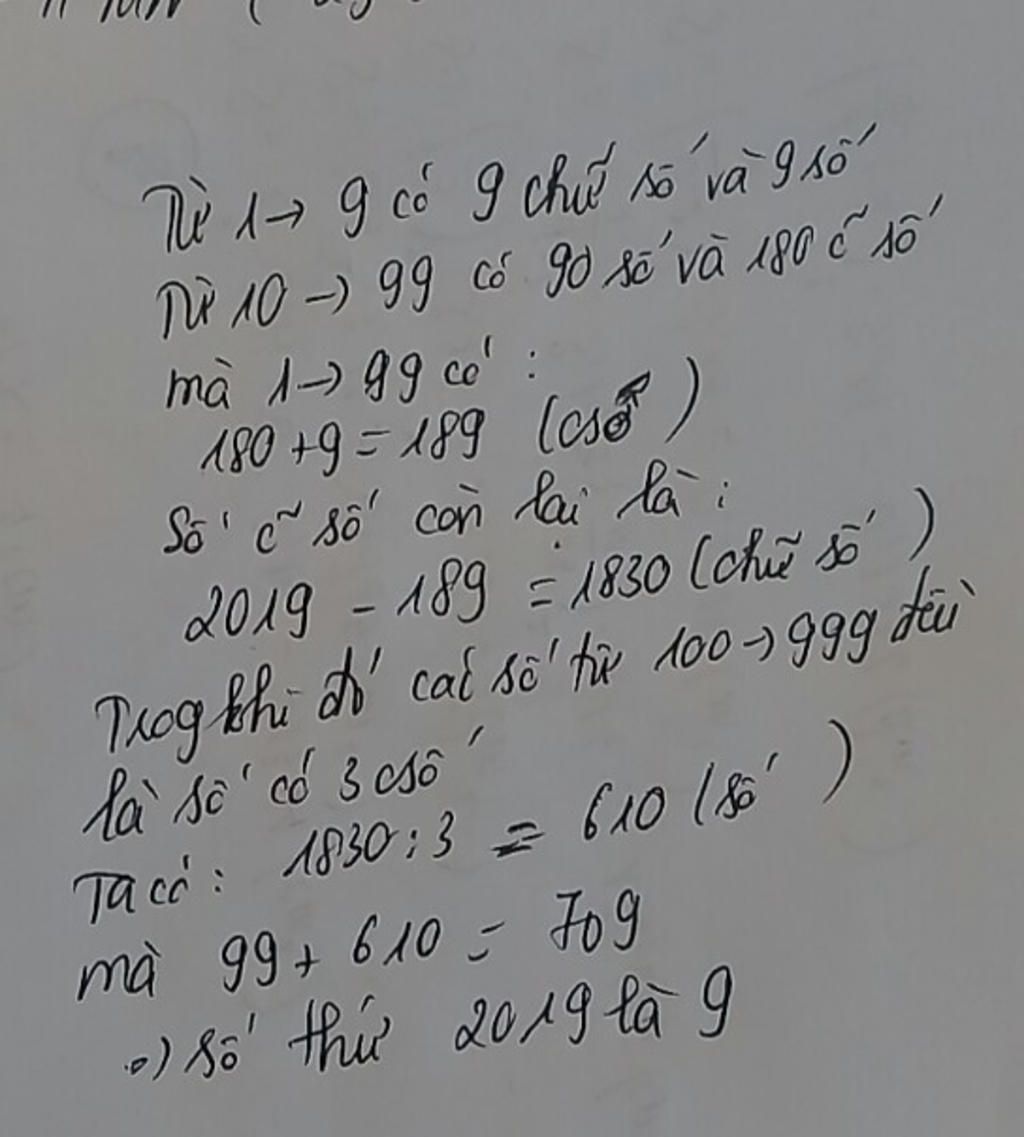 Từ 1→ 9 có 9 chữ số và 9 số
Từ 10 → 99 có 90 số và 180 c~ số
mà 1→ 99 có :
180 + 9 = 189 (csố)
Số c~ số còn lại là :
2019 - 189 = 1830 (chữ số)
Trog khi đó các số từ 100 → 999 đều
là số có 3 csố
Ta có : 1830 : 3 = 610 (số)
mà 99 + 610 = 709
=) số thứ 2019 là 9